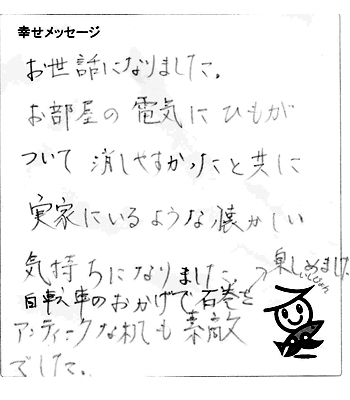 幸せメッセージ
お世話になりました。
お部屋の電気にひもが
ついて消しやすかったと共に
実家にいるような懐かしい
気持ちになりました。
自転車のおかげで石巻を→楽しめました
アンティークな机も素敵
でした。